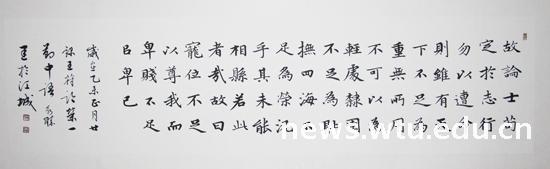 故論士苟
定於志行
勿以遭命
則雖有天
下不足為
重無所用
不可以為
輕處隸圉
不足為恥
撫四海不
足為榮況
乎其未能
相縣若此
者哉故曰
寵位不足
以尊我而
卑賤不足
㠯卑己
歲在乙未正月廿
王符論榮一
中語
於江城
news.wtu.edu.cn